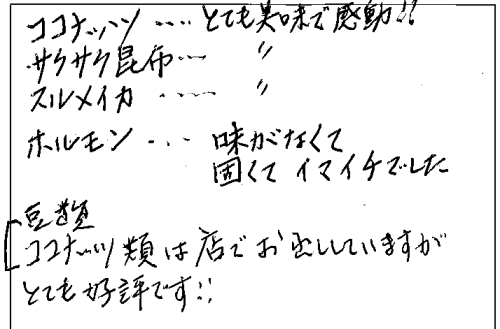 ココナッツ …. とても美味で感動!!
サクサク昆布… 〃
スルメイカ …. 〃
ホルモン … 味がなくて
固くてイマイチでした
豆類
ココナッツ類は店でお出ししていますが
とても好評です!!